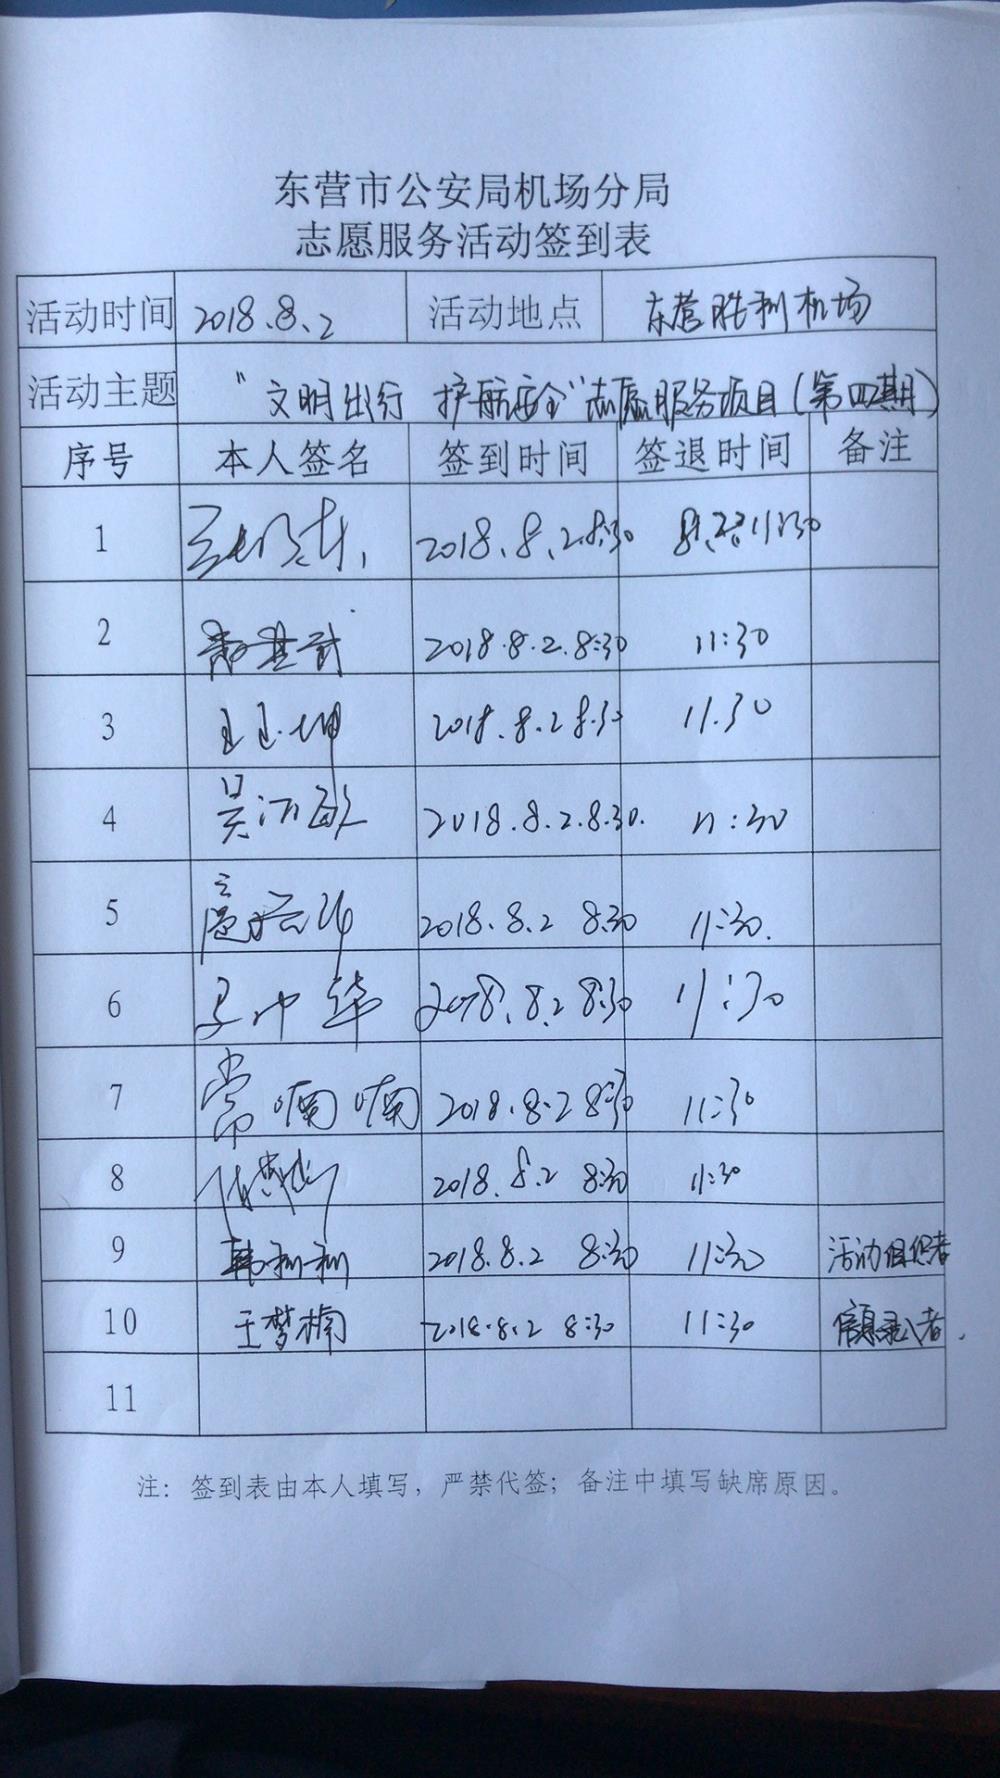 东营市公安局机场分局
志愿服务活动签到表
活动时间 2018.8.2 活动地点 东营胜利机场
活动主题 "文明出行 护航安全"志愿服务项目(第四期)
序号 本人签名 签到时间 签退时间 备注
1 2018.8.2.8:30 11:30
2 2018.8.2.8:30 11:30
3 2018.8.2 8:30 11:30
4 2018.8.2.8:30. 11:30
5 2018.8.2 8:30 11:30.
6 马中华 2018.8.2 8:30 11:30
7 常喃喃 2018.8.2 8:30 11:30
8 2018.8.2 8:30 11:30
9 韩利利 2018.8.2 8:30 11:30 活动组织者
10 王梦楠 2018.8.2 8:30 11:30 信息录入者.
11
注：签到表由本人填写，严禁代签；备注中填写缺席原因。